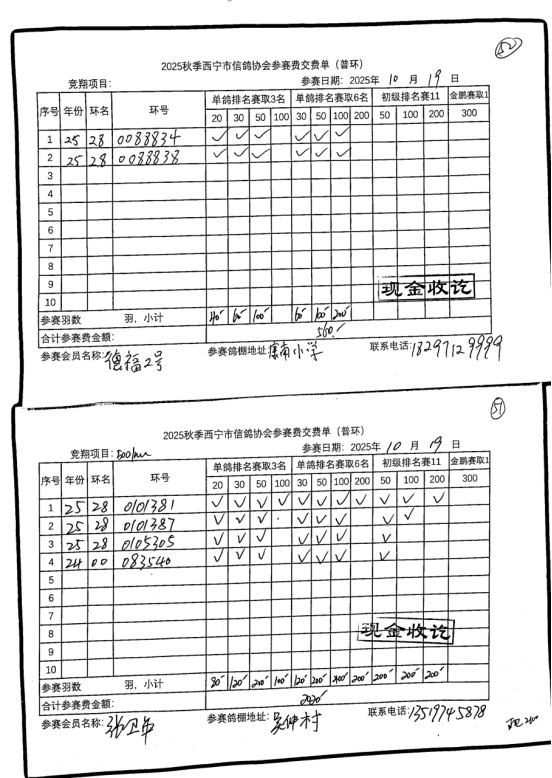 50
2025秋季西宁市信鸽协会参赛费交费单（普环）
竞翔项目： 参赛日期：2025年 10 月 19 日
序号 年份 环名 环号 单鸽排名赛取3名 单鸽排名赛取6名 初级排名赛11 金鹏赛取1
20 30 50 100 30 50 100 200 50 100 200 300
1 25 28 0088834 ✓ ✓ ✓ ✓ ✓ ✓
2 25 28 0088838 ✓ ✓ ✓ ✓ ✓ ✓
3
4
5
6
7
8
9
10
现金收讫
参赛羽数 羽，小计 40 60 100 60 100 200
合计参赛费金额： 560
参赛会员名称：德福2号 参赛鸽棚地址：康南小学 联系电话：18297129999
51
2025秋季西宁市信鸽协会参赛费交费单（普环）
竞翔项目： 参赛日期：2025年 10 月 19 日
序号 年份 环名 环号 单鸽排名赛取3名 单鸽排名赛取6名 初级排名赛11 金鹏赛取1
20 30 50 100 30 50 100 200 50 100 200 300
1 25 28 0101381 ✓ ✓ ✓ ✓ ✓ ✓ ✓ ✓ ✓ ✓ ✓
2 25 28 0101387 ✓ ✓ ✓ ✓ ✓ ✓ ✓ ✓
3 25 28 0105305 ✓ ✓ ✓ ✓ ✓ ✓ ✓
4 24 00 083540 ✓ ✓ ✓ ✓ ✓ ✓ ✓
5
6
7
8
9
10
现金收讫
参赛羽数 羽，小计 80 120 200 100 120 200 400 200 200 200 200
合计参赛费金额：
参赛会员名称：张卫军 参赛鸽棚地址：吴仲村 联系电话：13519745878